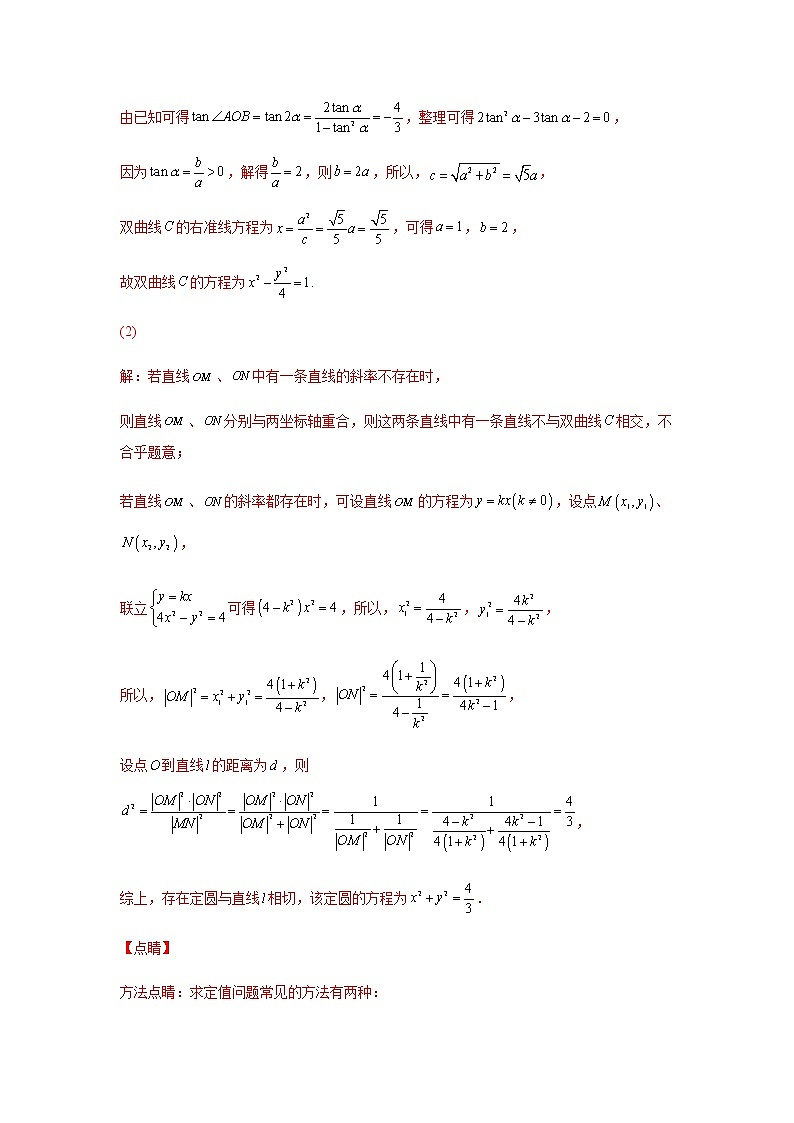 由已知可得 $\tan\angle AOB=\tan 2\alpha=\dfrac{2\tan\alpha}{1-\tan^2\alpha}=-\dfrac{4}{3}$，整理可得 $2\tan^2\alpha-3\tan\alpha-2=0$，
因为 $\tan\alpha=\dfrac{b}{a}>0$，解得 $\dfrac{b}{a}=2$，则 $b=2a$，所以，$c=\sqrt{a^2+b^2}=\sqrt{5}a$，
双曲线 $C$ 的右准线方程为 $x=\dfrac{a^2}{c}=\dfrac{\sqrt{5}}{5}a=\dfrac{\sqrt{5}}{5}$，可得 $a=1$，$b=2$，
故双曲线 $C$ 的方程为 $x^2-\dfrac{y^2}{4}=1$.
(2)
解：若直线 $OM$ 、$ON$ 中有一条直线的斜率不存在时，
则直线 $OM$ 、$ON$ 分别与两坐标轴重合，则这两条直线中有一条直线不与双曲线 $C$ 相交，不
合乎题意；
若直线 $OM$ 、$ON$ 的斜率都存在时，可设直线 $OM$ 的方程为 $y=kx(k\neq 0)$，设点 $M(x_1,y_1)$、
$N(x_2,y_2)$，
联立 $\begin{cases}y=kx\\4x^2-y^2=4\end{cases}$ 可得 $(4-k^2)x^2=4$，所以，$x_1^2=\dfrac{4}{4-k^2}$，$y_1^2=\dfrac{4k^2}{4-k^2}$，
所以，$|OM|^2=x_1^2+y_1^2=\dfrac{4(1+k^2)}{4-k^2}$，$|ON|^2=\dfrac{4\left(1+\dfrac{1}{k^2}\right)}{4-\dfrac{1}{k^2}}=\dfrac{4(1+k^2)}{4k^2-1}$，
设点 $O$ 到直线 $l$ 的距离为 $d$ ，则
$d^2=\dfrac{|OM|^2\cdot|ON|^2}{|MN|^2}=\dfrac{|OM|^2\cdot|ON|^2}{|OM|^2+|ON|^2}=\dfrac{1}{\dfrac{1}{|OM|^2}+\dfrac{1}{|ON|^2}}=\dfrac{1}{\dfrac{4-k^2}{4(1+k^2)}+\dfrac{4k^2-1}{4(1+k^2)}}=\dfrac{4}{3}$，
综上，存在定圆与直线 $l$ 相切，该定圆的方程为 $x^2+y^2=\dfrac{4}{3}$．
【点睛】
方法点睛：求定值问题常见的方法有两种：